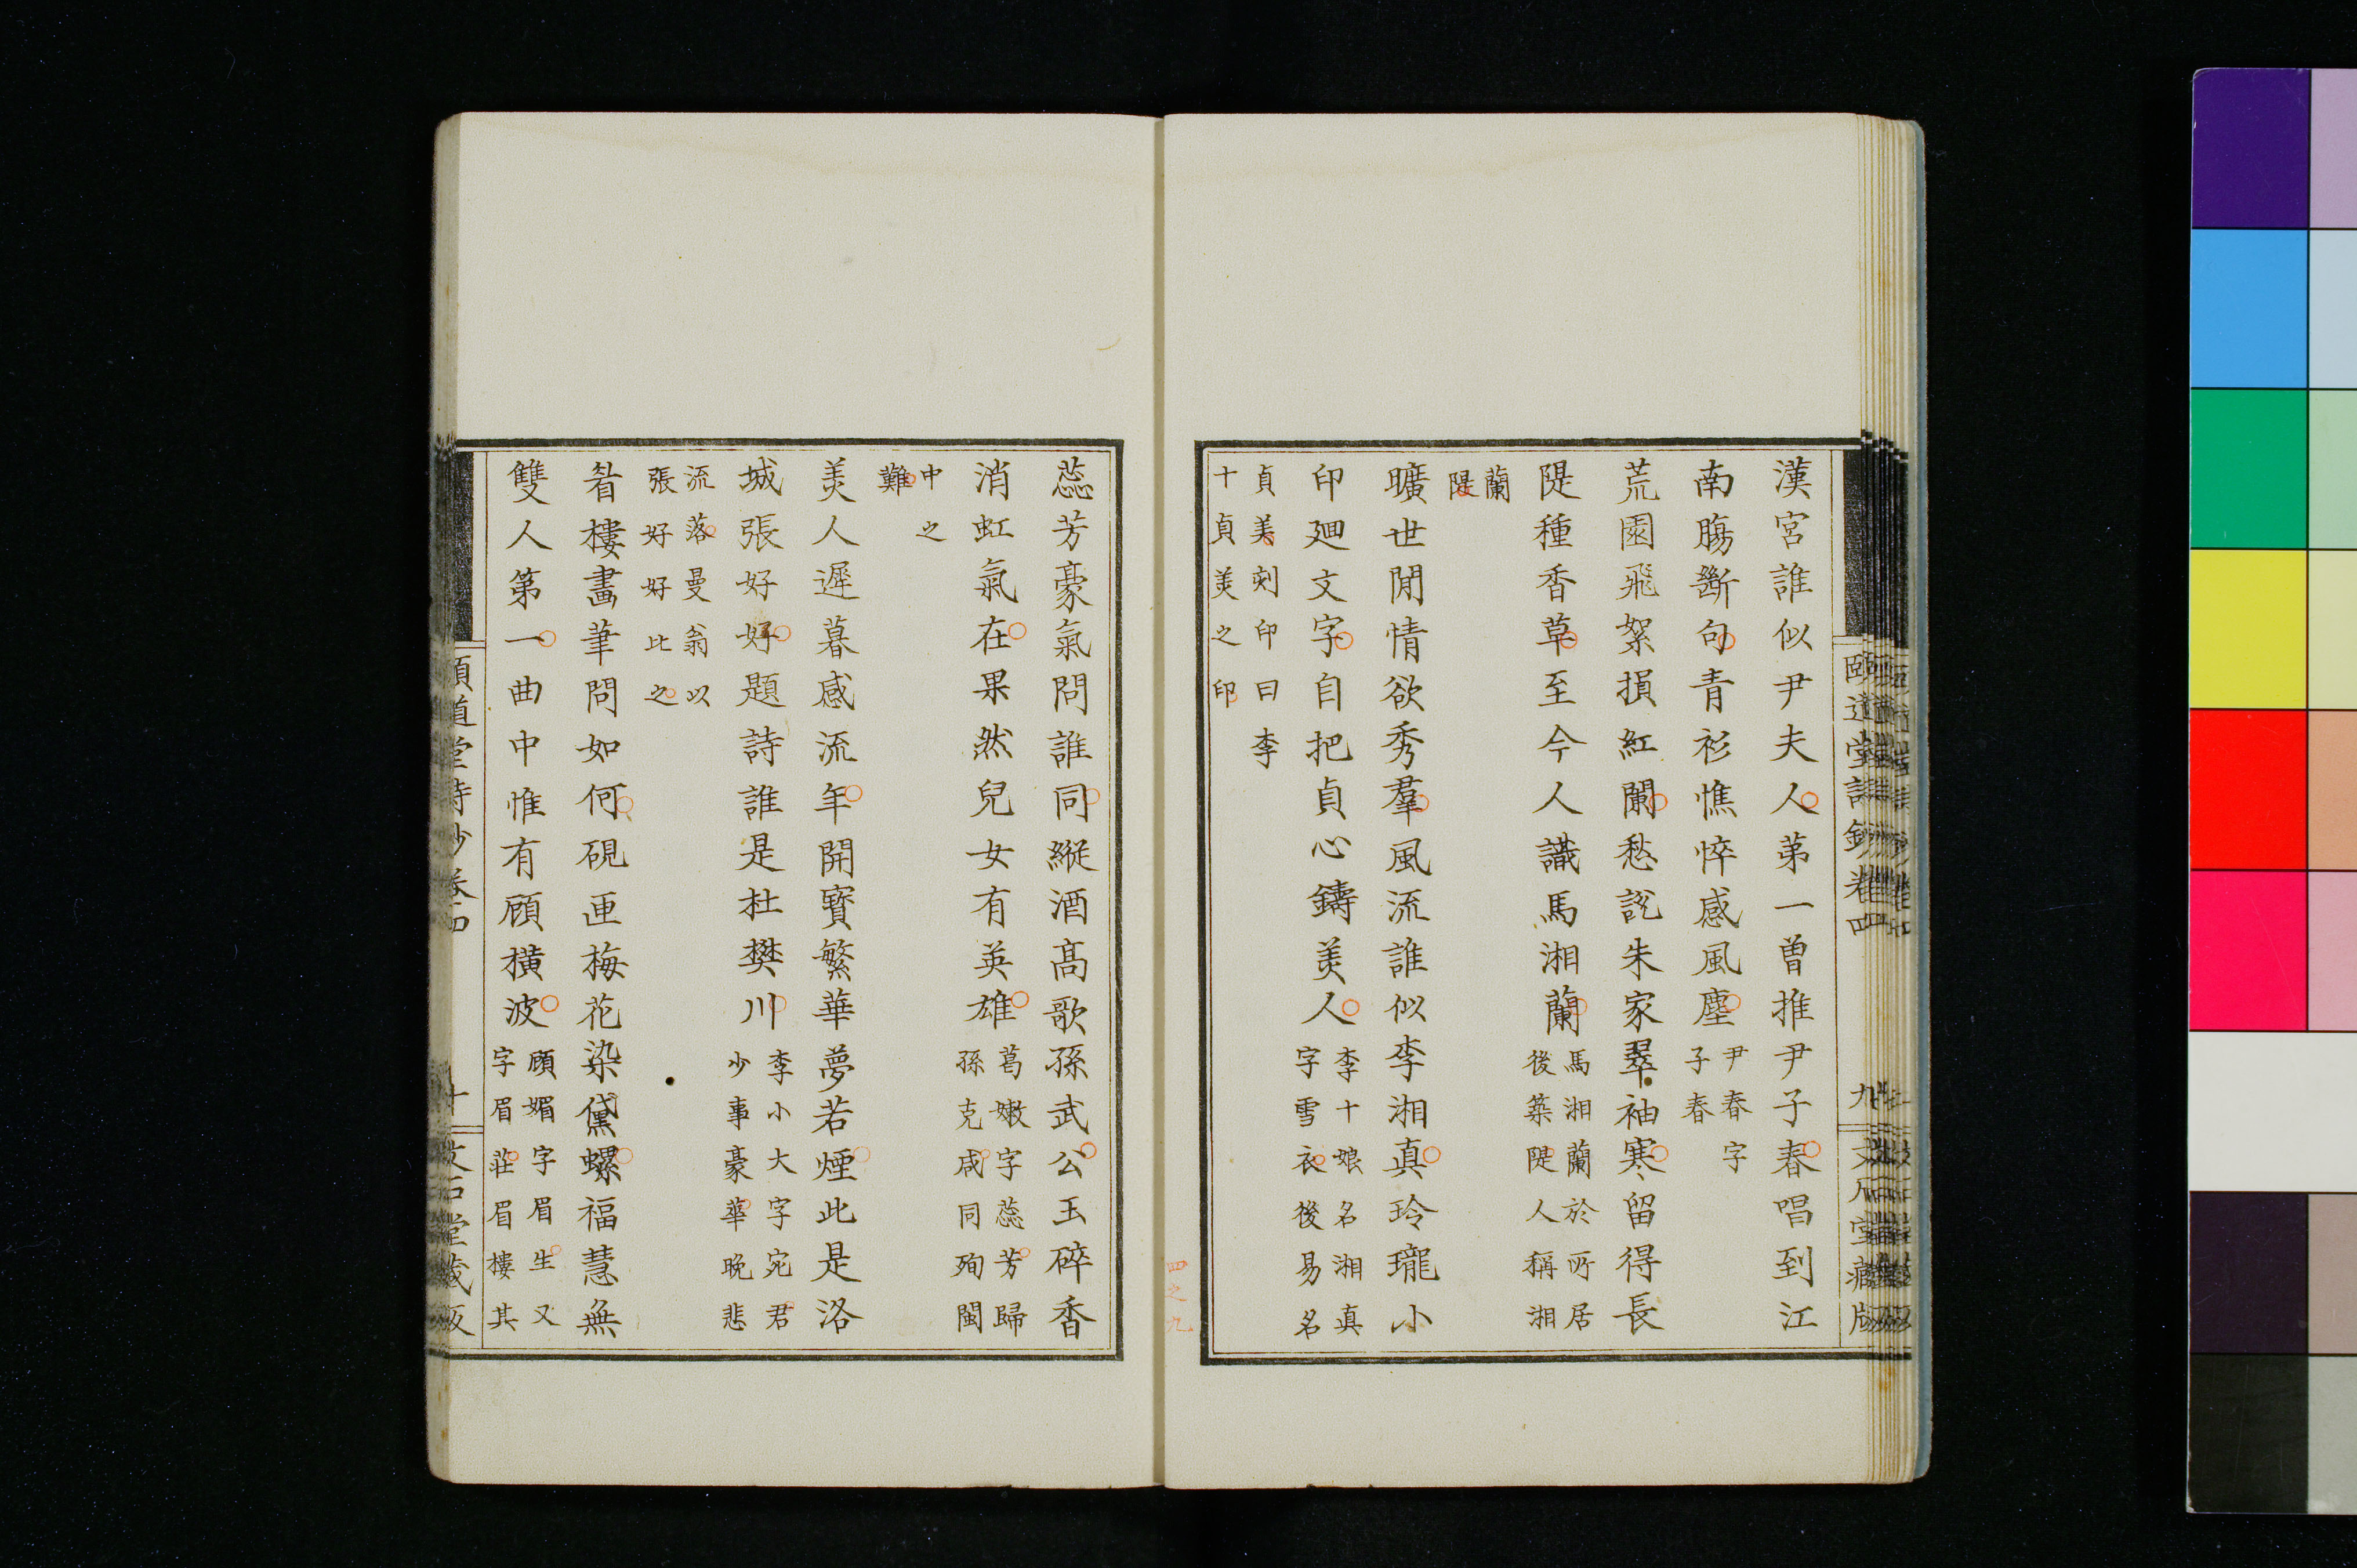 頤道堂詩鈔卷四
九
文石堂藏版
漢宮誰似尹夫人第一曾推尹子春唱到江
南膓斷句青衫憔悴感風塵尹春字
子春
荒園飛絮損紅闌愁說朱家翠袖寒留得長
隄種香草至今人識馬湘蘭馬湘蘭於所居
後築隄人稱湘
蘭
隄
曠世閒情欲秀羣風流誰似李湘真玲瓏小
印廻文字自把貞心鑄美人李十娘名湘真
字雪衣後易名
貞美刻印曰李
十貞美之印
四之九
蕊芳豪氣問誰同縱酒高歌孫武公玉碎香
消虹氣在果然兒女有英雄葛嫩字蕊芳歸
孫克咸同殉閩
中之
難
美人遲暮感流年開寶繁華夢若煙此是洛
城張好好題詩誰是杜樊川李小大字宛君
少事豪華晚悲
流落曼翁以
張好好比之
眉樓畫筆問如何硯匣梅花染黛螺福慧無
雙人第一曲中惟有顧橫波顧媚字眉生又
字眉莊眉樓其
頤道堂詩鈔卷四
十
文石堂藏版